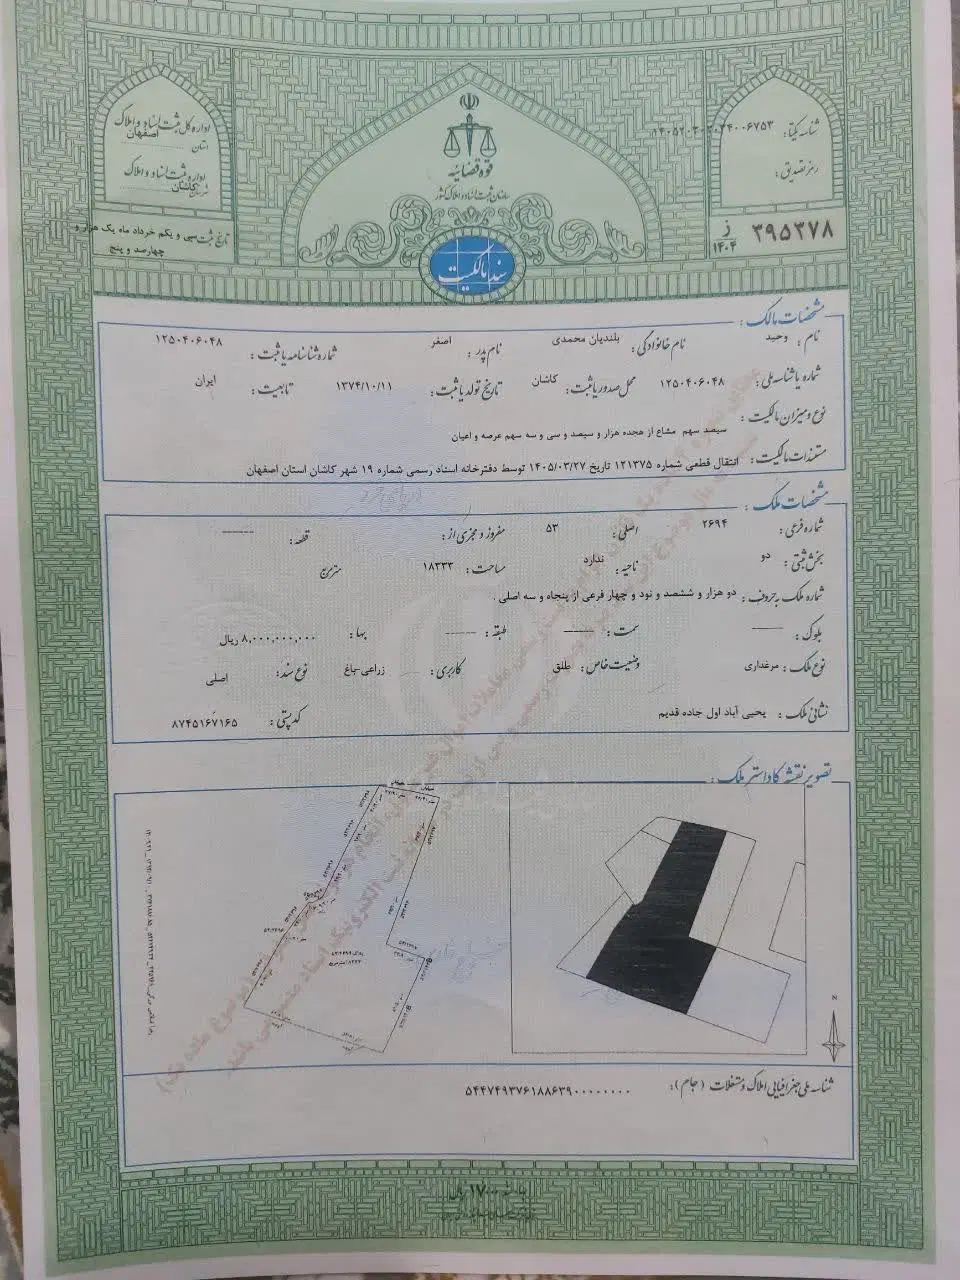 اداره کل ثبت اسناد و املاک
استان اصفهان
اداره ثبت اسناد و املاک
شهرستان کاشان
تاریخ ثبت: سی و یکم خرداد ماه یک هزار و
چهارصد و پنج
قوه قضائیه
سازمان ثبت اسناد و املاک کشور
سند مالکیت
شناسه یکتا:
رمز تصدیق:
۳۹۵۳۷۸ ز ۱۴۰۴
مشخصات مالک:
نام: وحید نام خانوادگی: بلندیان محمدی نام پدر: اصغر شماره شناسنامه یا ثبت: ۱۲۵۰۴۰۶۰۴۸
شماره یا شناسه ملی: ۱۲۵۰۴۰۶۰۴۸ محل صدور یا ثبت: کاشان تاریخ تولد یا ثبت: ۱۳۷۴/۱۰/۱۱ تابعیت: ایران
نوع و میزان مالکیت: سیصد سهم مشاع از هجده هزار و سیصد و سی و سه سهم عرصه و اعیان
مستندات مالکیت: انتقال قطعی شماره ۱۲۱۳۷۵ تاریخ ۱۴۰۵/۰۳/۲۷ توسط دفترخانه اسناد رسمی شماره ۱۹ شهر کاشان استان اصفهان
مشخصات ملک:
شماره فرعی: ۲۶۹۴ اصلی: ۵۳ مفروز و مجزی از: قطعه: ------
بخش ثبتی: دو ناحیه: ندارد مساحت: ۱۸۳۳۳ مترمربع
شماره ملک به حروف: دو هزار و ششصد و نود و چهار فرعی از پنجاه و سه اصلی .
بلوک: ------ سمت: ------ طبقه: ------ بها: ۸,۰۰۰,۰۰۰,۰۰۰ ریال
نوع ملک: مرغداری وضعیت خاص: طلق کاربری: زراعی-باغ نوع سند: اصلی
نشانی ملک: یحیی آباد اول جاده قدیم کد پستی: ۸۷۴۵۱۶۷۱۶۵
تصویر نقشه کاداستر ملک:
N
شناسه ملی جغرافیایی املاک و مستغلات (جام): ۵۴۴۷۴۹۳۷۶۱۸۸۶۳۹۰۰۰۰۰۰۰۰۰